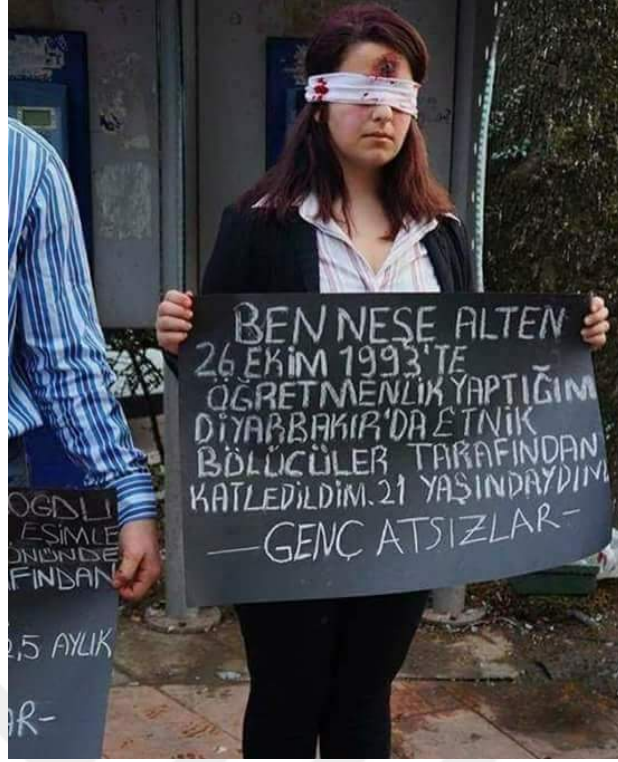 BEN NEŞE ALTEN
26 EKİM 1993'TE
ÖĞRETMENLİK YAPTIĞIM
DİYARBAKIR'DA ETNİK
BÖLÜCÜLER TARAFINDAN
KATLEDİLDİM. 21 YAŞINDAYDIM
—GENÇ ATSIZLAR-
OGDLI
EŞİMLE
ÖNÜNDE
FINDAN
2,5 AYLIK
AR-